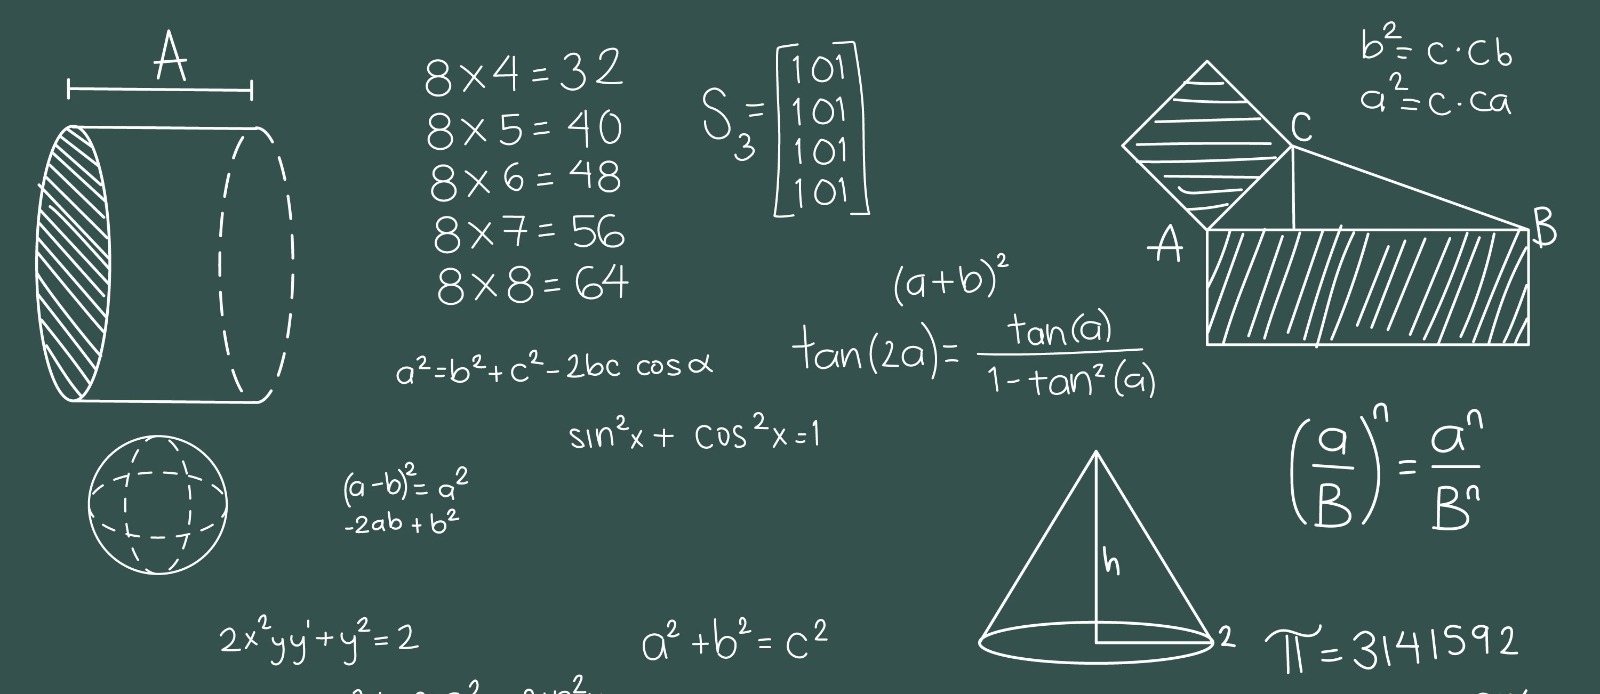 A
8×4=32
8×5=40
8×6=48
8×7=56
8×8=64
S₃=[101
101
101
101]
b²=c·cb
a²=c·ca
C
A
B
(a+b)²
tan(2a)=tan(a)/1-tan²(a)
a²=b²+c²-2bc cosα
sin²x+cos²x=1
(a-b)²=a²
-2ab+b²
(a/B)ⁿ=aⁿ/Bⁿ
h
2
2x²yy'+y²=2
a²+b²=c²
π=3141592